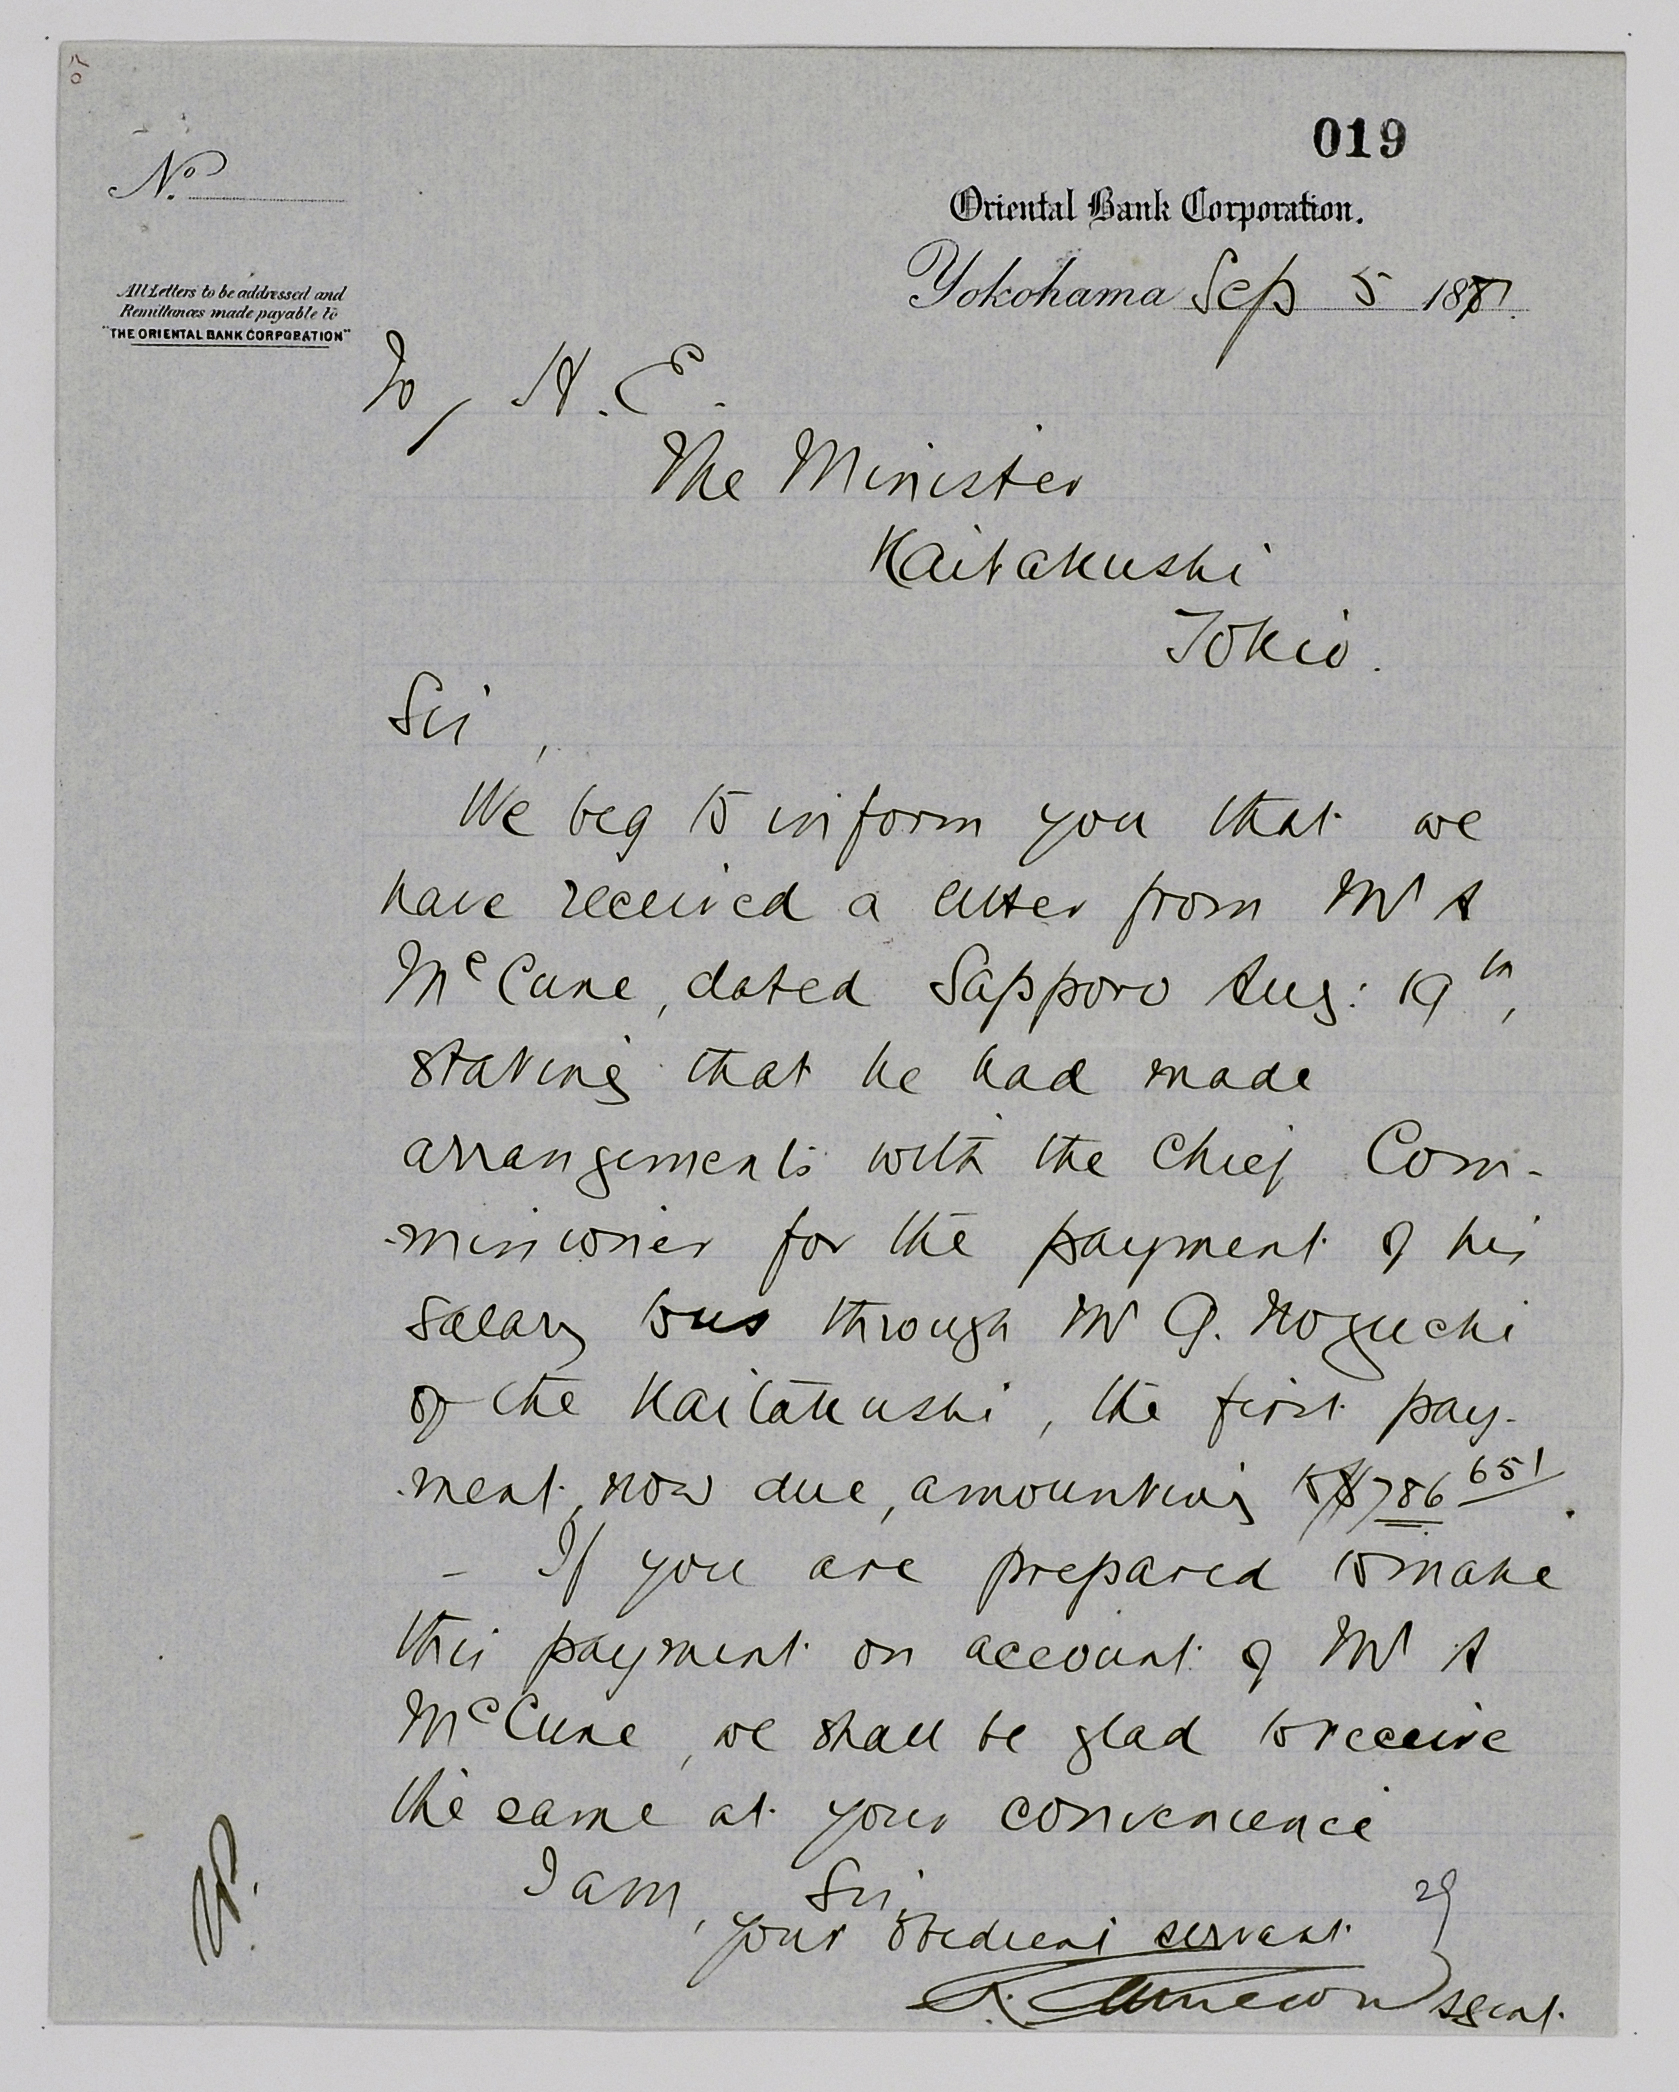 019
Nº
Oriental Bank Corporation.
Yokohama Sep 5 187
All Letters to be addressed and
Remittances made payable to
"THE ORIENTAL BANK CORPORATION"
To, H. E.
The Minister
Kaitakushi
Tokio.
Sir,
We beg to inform you that we
have received a letter from Mr A
McCune, dated Sapporo Aug: 19th,
stating that he had made
arrangements with the Chief Com-
-missioner for the payment of his
salary to us through Mr G. Noguchi
of the Kaitakushi, the first pay-
-ment, now due, amounting to $786 651.
- If you are prepared to make
this payment on account of Mr A
McCune, we shall be glad to receive
the same at your convenience
I am, Sir,
your obedient servant
Agent.